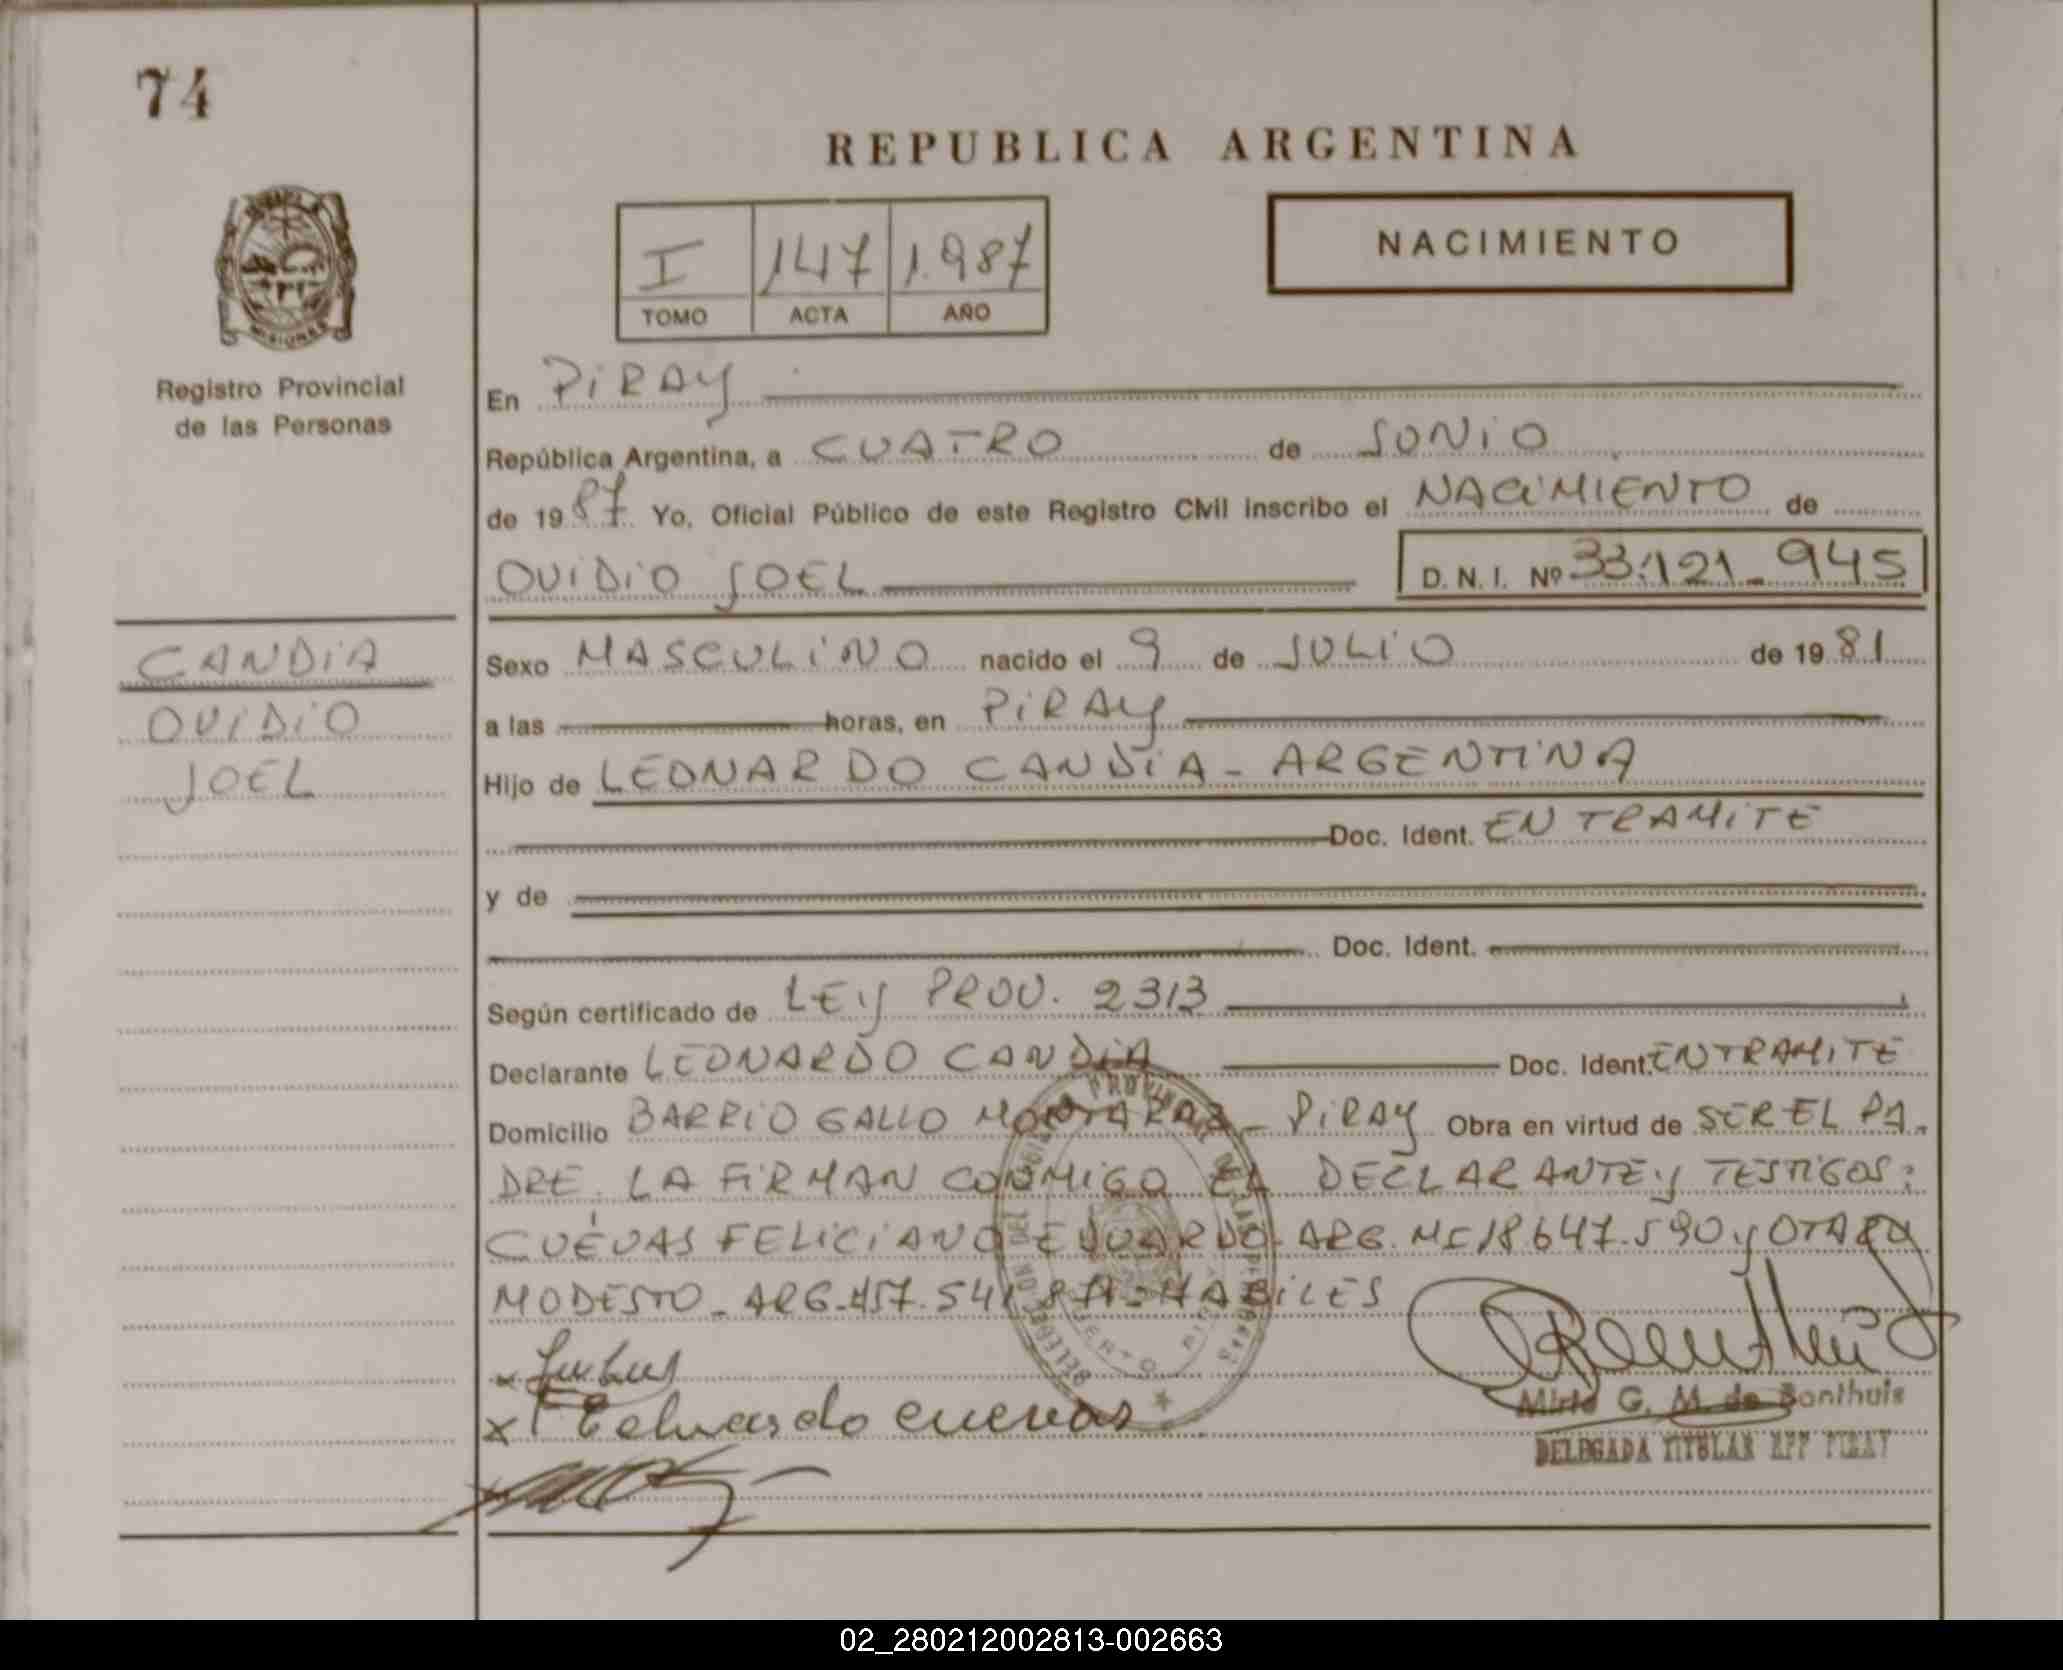 74
REPUBLICA ARGENTINA
I 147 1.987
TOMO ACTA AÑO
NACIMIENTO
Registro Provincial
de las Personas
En PIRAY
República Argentina, a CUATRO de JUNIO
de 1987 Yo, Oficial Público de este Registro Civil inscribo el NACIMIENTO de
OVIDIO JOEL D. N. I. Nº 33.121_945
CANDIA
OVIDIO
JOEL
Sexo MASCULINO nacido el 9 de JULIO de 1981
a las horas, en PIRAY
Hijo de LEONARDO CANDIA - ARGENTINA
Doc. Ident. EN TRAMITE
y de
Doc. Ident.
Según certificado de LEY PROV. 2313
Declarante LEONARDO CANDIA Doc. Ident. EN TRAMITE
Domicilio BARRIO GALLO - PIRAY Obra en virtud de SER EL PA-
DRE. LA FIRMAN CONMIGO EL DECLARANTE y TESTIGOS:
CUEVAS FELICIANO EDUARDO - ARG. 18647.590 y
MODESTO - ARG. HABILES
x
x Eduardo cuevas
Mirta G. M. de Bonthuis
DELEGADA TITULAR RPP PIRAY
02_280212002813-002663